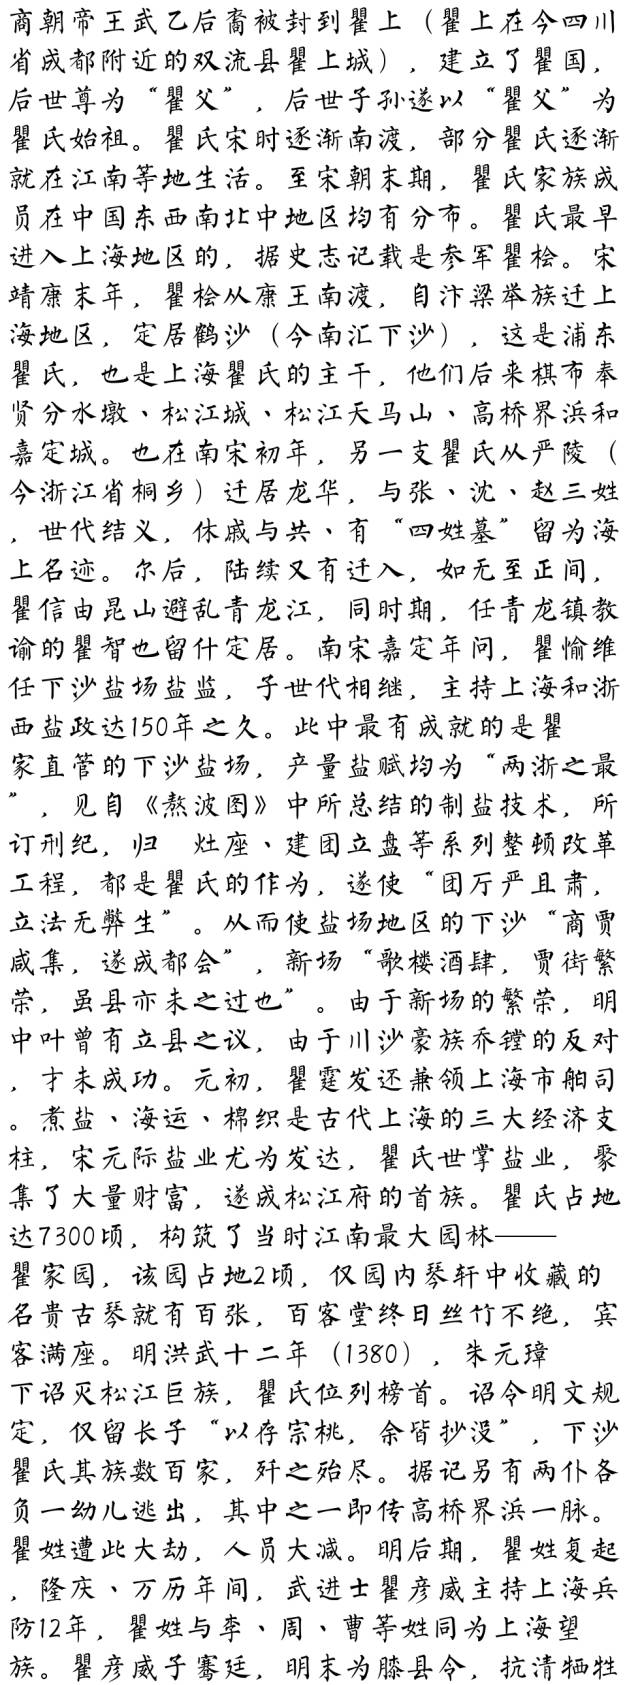 商朝帝王武乙后裔被封到瞿上（瞿上在今四川
省成都附近的双流县瞿上城），建立了瞿国，
后世尊为“瞿父”，后世子孙遂以“瞿父”为
瞿氏始祖。瞿氏宋时逐渐南渡，部分瞿氏逐渐
就在江南等地生活。至宋朝末期，瞿氏家族成
员在中国东西南北中地区均有分布。瞿氏最早
进入上海地区的，据史志记载是参军瞿桧。宋
靖康末年，瞿桧从康王南渡，自汴梁举族迁上
海地区，定居鹤沙（今南汇下沙），这是浦东
瞿氏，也是上海瞿氏的主干，他们后来棋布奉
贤分水墩、松江城、松江天马山、高桥界浜和
嘉定城。也在南宋初年，另一支瞿氏从严陵（
今浙江省桐乡）迁居龙华，与张、沈、赵三姓
，世代结义，休戚与共、有“四姓墓”留为海
上名迹。尔后，陆续又有迁入，如无至正间，
瞿信由昆山避乱青龙江，同时期，任青龙镇教
谕的瞿智也留什定居。南宋嘉定年问，瞿愉维
任下沙盐场盐监，子世代相继，主持上海和浙
西盐政达150年之久。此中最有成就的是瞿
家直管的下沙盐场，产量盐赋均为“两浙之最
”，见自《熬波图》中所总结的制盐技术，所
订刑纪，归　灶座、建团立盘等系列整顿改革
工程，都是瞿氏的作为，遂使“团厅严且肃，
立法无弊生”。从而使盐场地区的下沙“商贾
咸集，遂成都会”，新场“歌楼酒肆，贾街繁
荣，虽县亦未之过也”。由于新场的繁荣，明
中叶曾有立县之议，由于川沙豪族乔镗的反对
，才未成功。元初，瞿霆发还兼领上海市舶司
。煮盐、海运、棉织是古代上海的三大经济支
柱，宋元际盐业尤为发达，瞿氏世掌盐业，聚
集了大量财富，遂成松江府的首族。瞿氏占地
达7300顷，构筑了当时江南最大园林——
瞿家园，该园占地2顷，仅园内琴轩中收藏的
名贵古琴就有百张，百客堂终日丝竹不绝，宾
客满座。明洪武十二年（1380），朱元璋
下诏灭松江巨族，瞿氏位列榜首。诏令明文规
定，仅留长子“以存宗桃，余皆抄没”，下沙
瞿氏其族数百家，歼之殆尽。据记另有两仆各
负一幼儿逃出，其中之一即传高桥界浜一脉。
瞿姓遭此大劫，人员大减。明后期，瞿姓复起
，隆庆、万历年间，武进士瞿彦威主持上海兵
防12年，瞿姓与李、周、曹等姓同为上海望
族。瞿彦威子骞廷，明末为膝县令，抗清牺牲